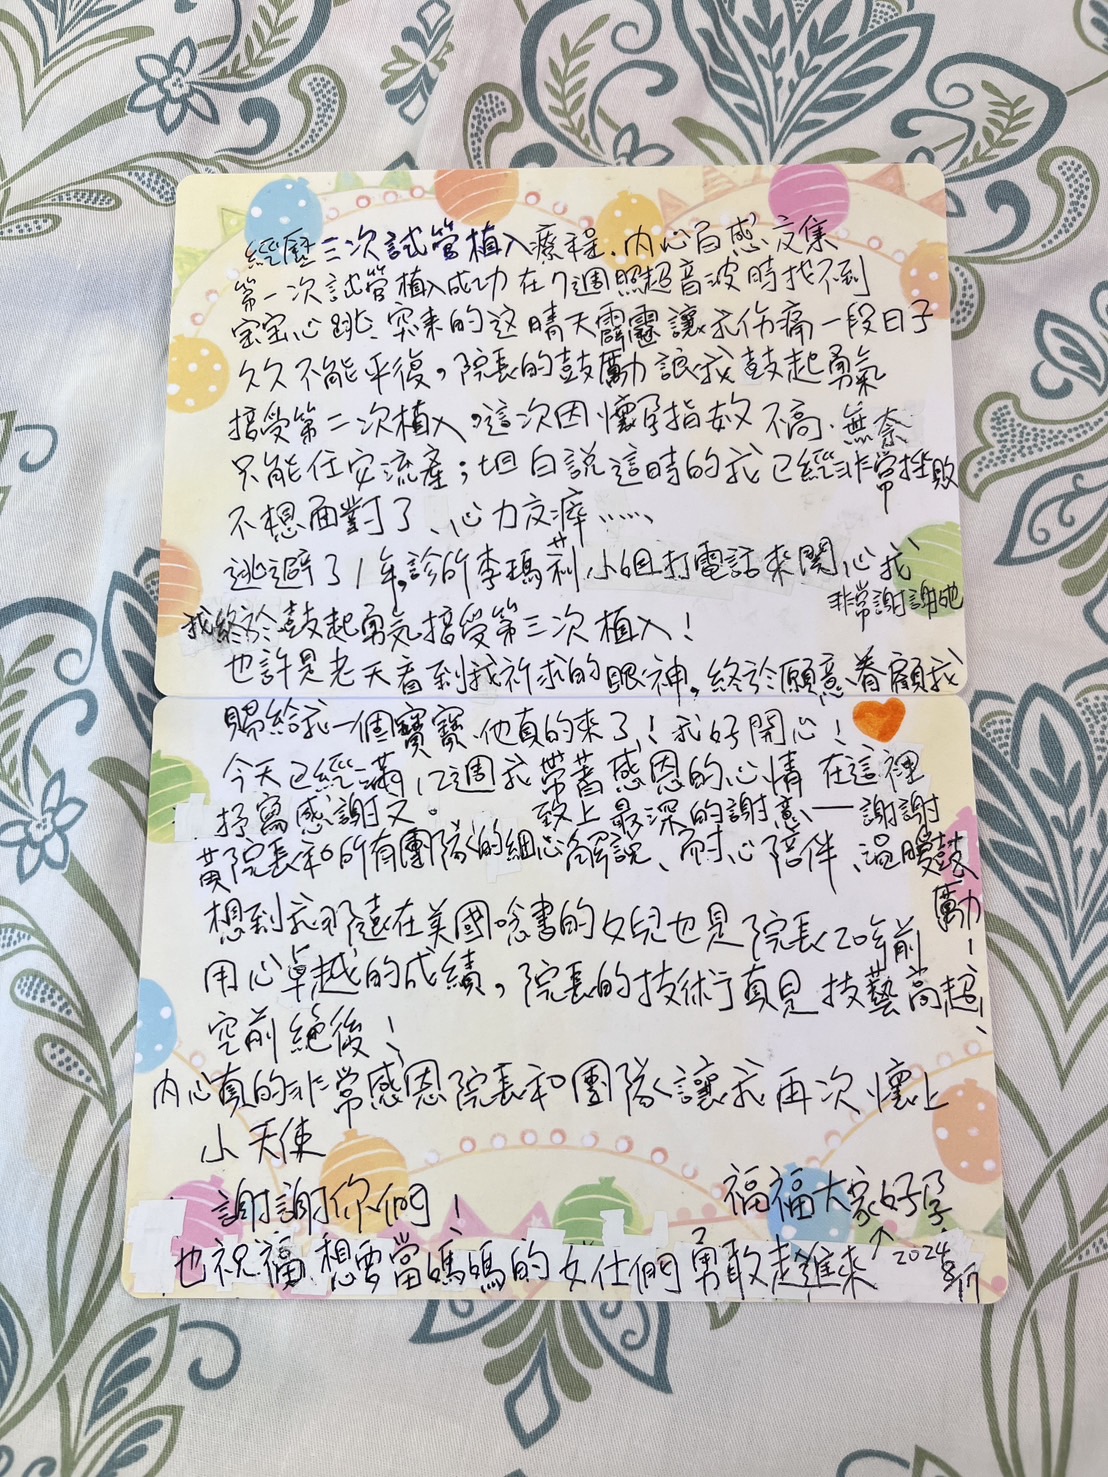 經歷三次試管植入療程、內心百感交集
第一次試管植入成功在7週照超音波時找不到
宝宝心跳、突來的这晴天霹靂讓我伤痛一段日子
久久不能平復。院長的鼓勵讓我鼓起勇氣
接受第二次植入。這次因懷孕指数不高、無奈
只能任它流產；坦白說這時的我已經非常挫敗
不想面對了、心力交瘁……
逃避了1年。診所李瑪莉小姐打電話來關心我
非常謝謝她
我終於鼓起勇氣接受第三次植入！
也許是老天看到我祈求的眼神，終於願意眷顧我
賜給我一個寶寶、他真的來了！我好開心！
今天已經滿12週我帶著感恩的心情在這裡
抒寫感謝文。 致上最深的謝意——謝謝
黃院長和所有團隊的細心解說、耐心陪伴、溫暖鼓
勵！
想到我那遠在美國唸書的女兒也是院長20年前
用心卓越的成績。院長的技術真是技藝高超、
空前絕後！
內心真的非常感恩院長和團隊讓我再次懷上
小天使
謝謝你們！
福福大家好孕
也祝福、想要當媽媽的女仕們勇敢走進來
2024